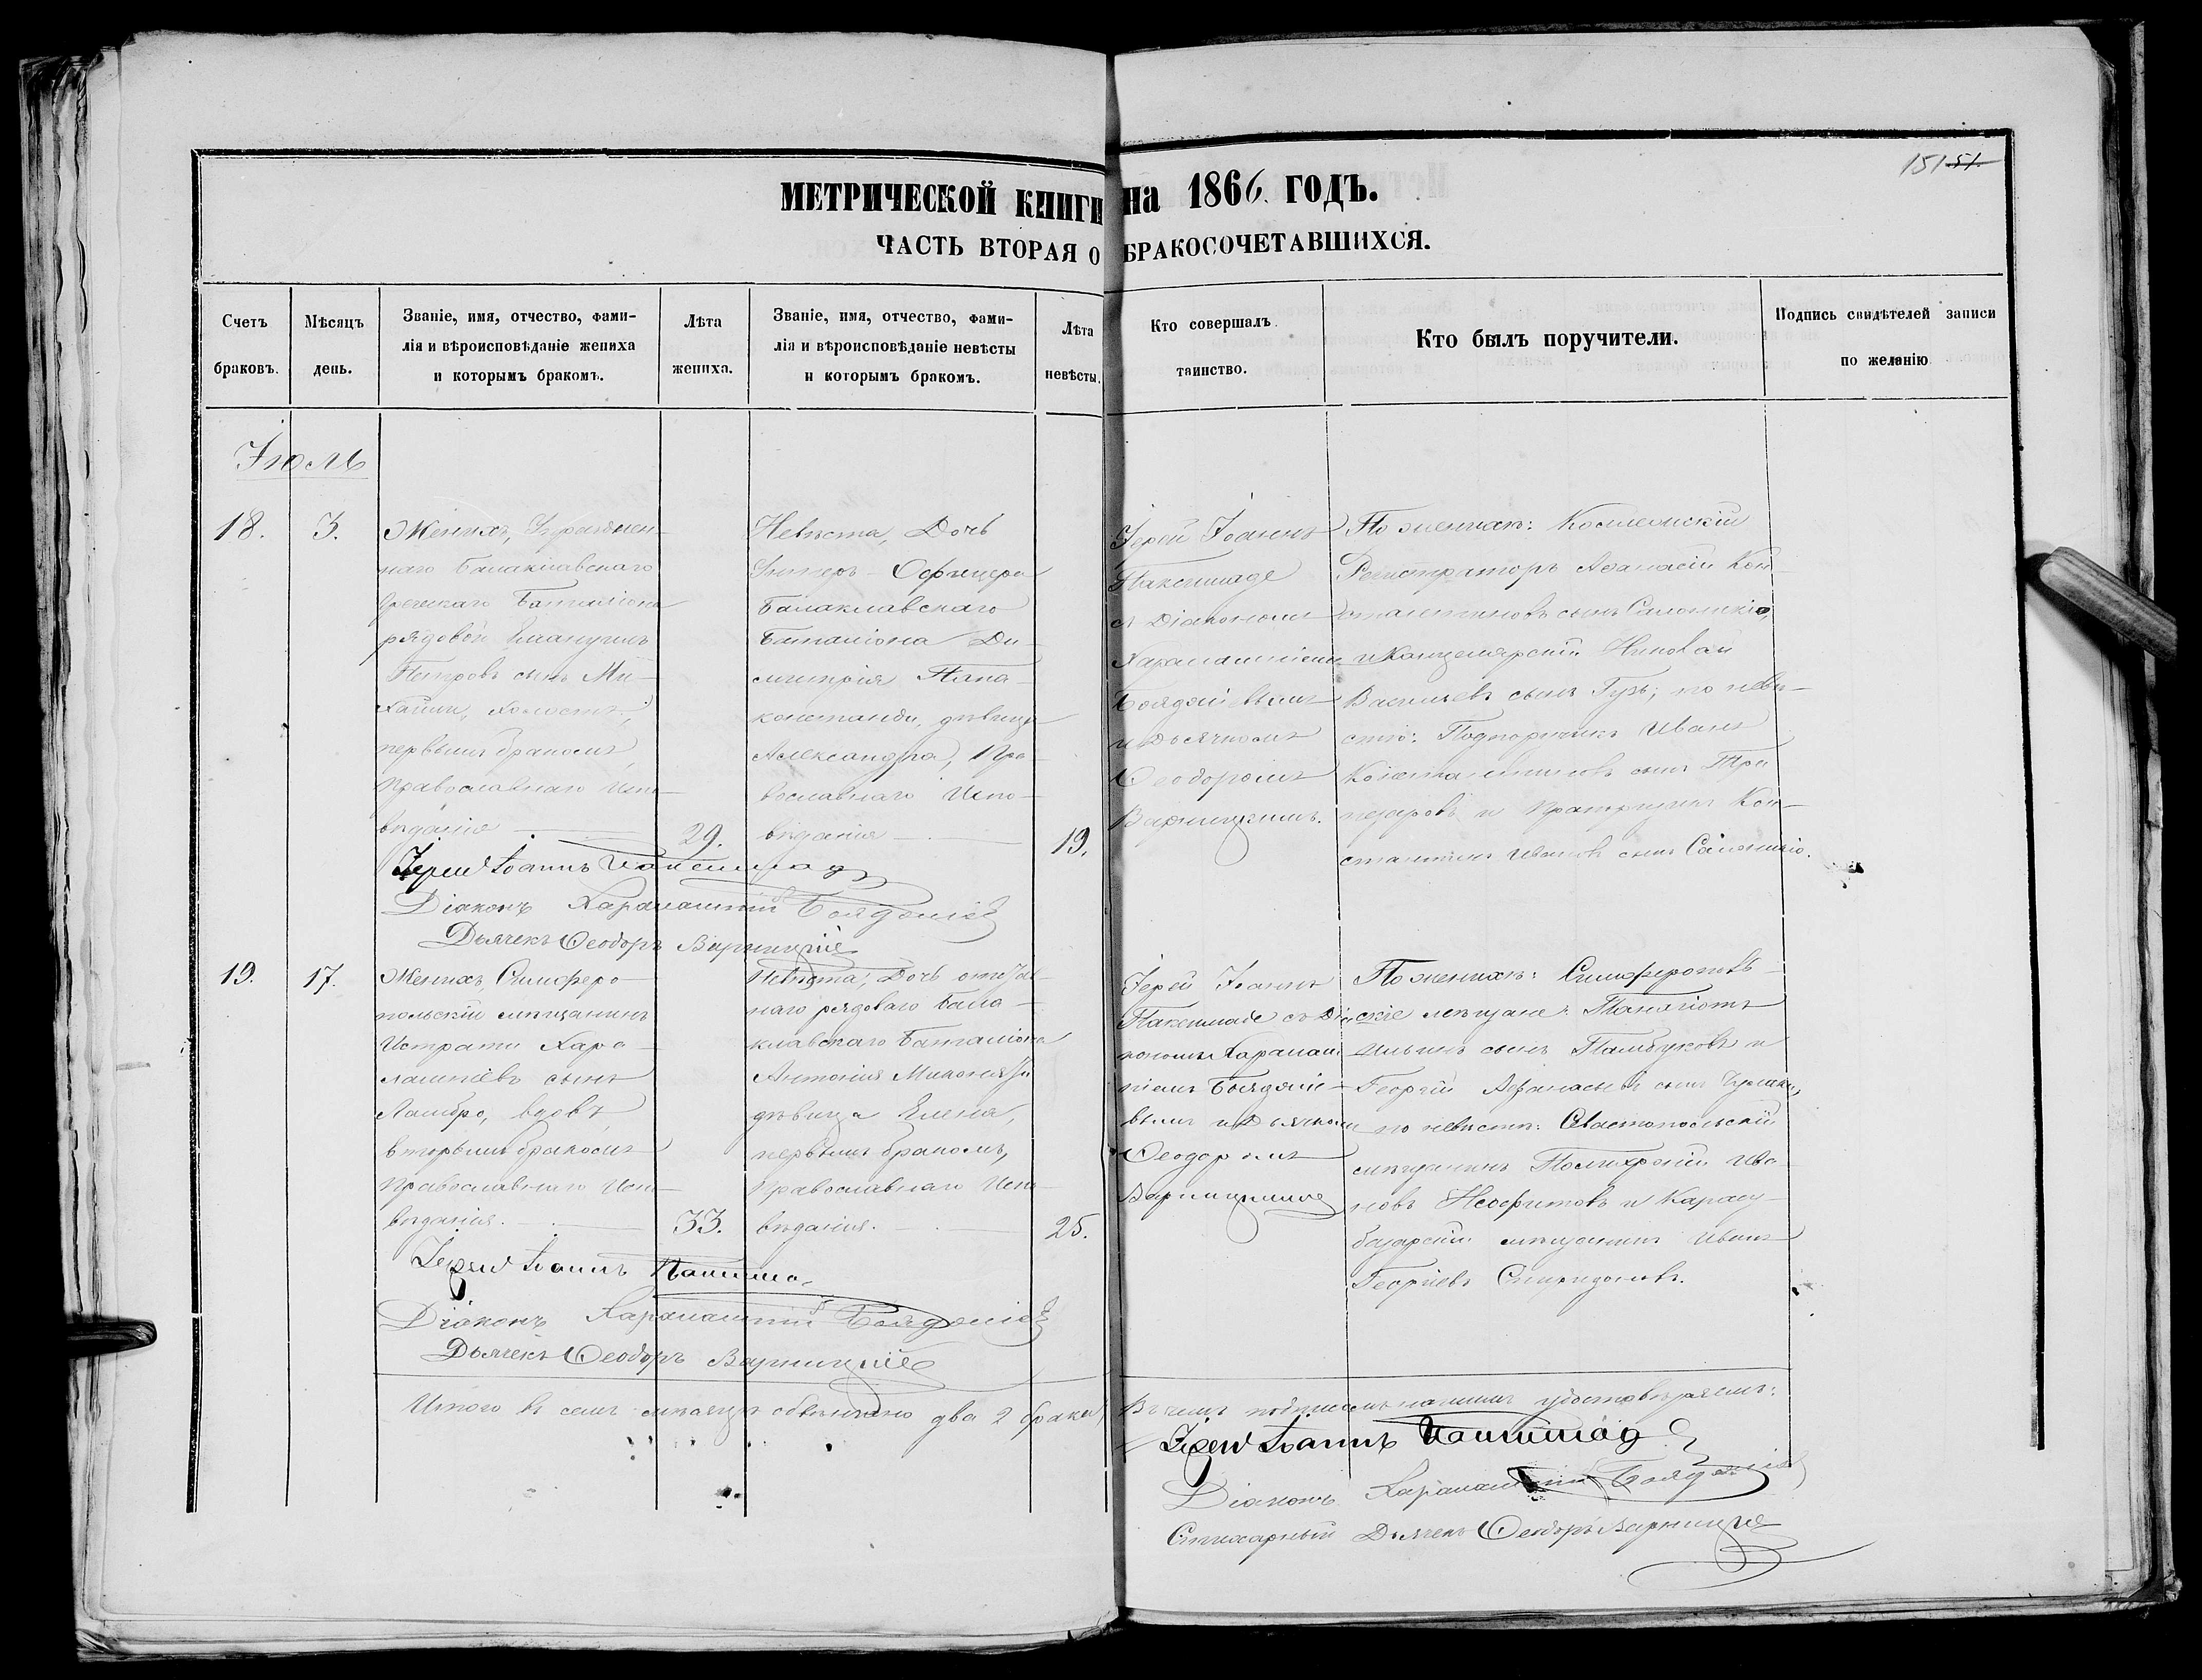 151 51.
МЕТРИЧЕСКОЙ КНИГИ на 1866. ГОДЪ.
ЧАСТЬ ВТОРАЯ О БРАКОСОЧЕТАВШИХСЯ.
Счетъ браковъ.
Мѣсяцъ день.
Званіе, имя, отчество, фами-
лія и вѣроисповѣданіе жениха
и которымъ бракомъ.
Лѣта жениха.
Званіе, имя, отчество, фами-
лія и вѣроисповѣданіе невѣсты
и которымъ бракомъ.
Лѣта невѣсты.
Кто совершалъ таинство.
Кто былъ поручители.
Подпись свидѣтелей записи
по желанію
Іюль
18.
3.
Женихъ, Упразднен-
наго Балаклавскаго
Греческаго Баталіона
рядовой Емануилъ
Петровъ сынъ Ми-
хайли, холостъ,
первымъ бракомъ,
Православнаго Испо-
вѣданія
29.
Невѣста, Дочь
Унтеръ-Офицера
Балаклавскаго
Баталіона Ди-
митрія Папа-
констанди, дѣвица
Александра, Пра-
вославнаго Испо-
вѣданія
19.
Іерей Іоаннъ
Паксимаде
съ Діакономъ
Харалампіемъ
Бояджіевымъ
и Дьячкомъ
Ѳеодоромъ
Варницкимъ.
По женихѣ: Коллежскій
Регистраторъ Аѳанасій Кон-
стантиновъ сынъ
и Канцелярскій Николай
Васильевъ сынъ Гузь; по невѣ-
стѣ: Подпоручикъ Иванъ
Константиновъ сынъ
и Кон-
стантинъ Ивановъ сынъ
Іерей Іоаннъ Паксимад
Діаконъ Харалампій Бояджіев
Дьячекъ Ѳеодоръ Варницкіе
19.
17.
Женихъ, Симферо-
польскій мѣщанинъ
Истрати Хара-
лампіевъ сынъ
Ламбро, вдовъ,
вторымъ бракомъ
Православнаго Испо-
вѣданія.
33.
Невѣста, Дочь
наго рядоваго Бала-
клавскаго Баталіона
Антонія
дѣвица Елена,
первымъ бракомъ,
Православнаго Испо-
вѣданія.
25.
Іерей Іоаннъ
Паксимаде съ Діа-
кономъ Харалам-
піемъ Бояджіе-
вымъ и Дьячкомъ
Ѳеодоромъ
Варницкимъ
По женихѣ: Симферополь-
скіе мѣщане: Панагіотъ
Ильинъ сынъ Памбуковъ и
Георгій Аѳанасьевъ сынъ
по невѣстѣ: Севастопольскій
мѣщанинъ Поликроній Ива-
новъ Неофитовъ и Карасу-
базарскій мѣщанинъ Иванъ
Георгіевъ Спиридоновъ.
Іерей Іоаннъ
Діаконъ Харалампій Бояджіев
Дьячекъ Ѳеодоръ Варницкіе
Итого въ семъ мѣсяцѣ обвѣнчано два 2 брака
Въ чемъ подписомъ нашимъ удостовѣряемъ:
Іерей Іоаннъ Паксимад
Діаконъ Харалампій Бояджіев
Стихарный Дьячекъ Ѳеодоръ Варницкіе